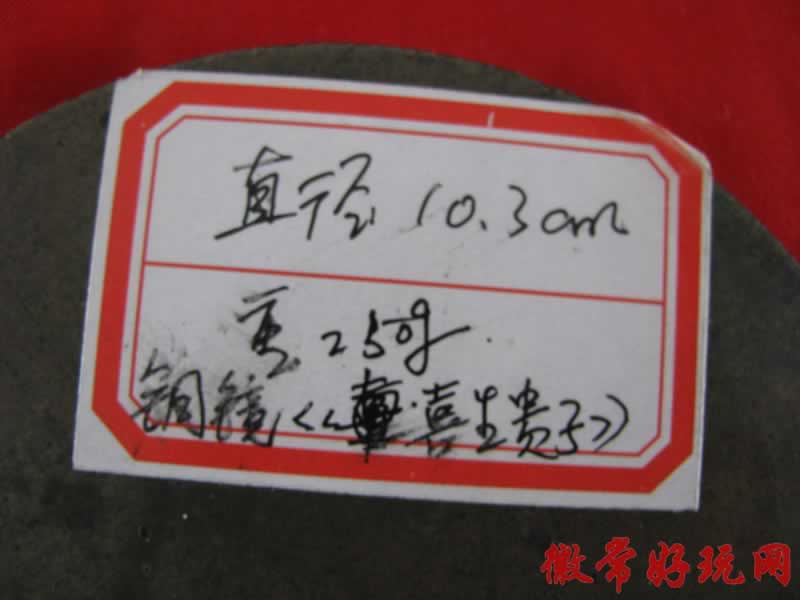 直径 10.3cm
重 250g
铜镜《喜生贵子》
微常好玩网